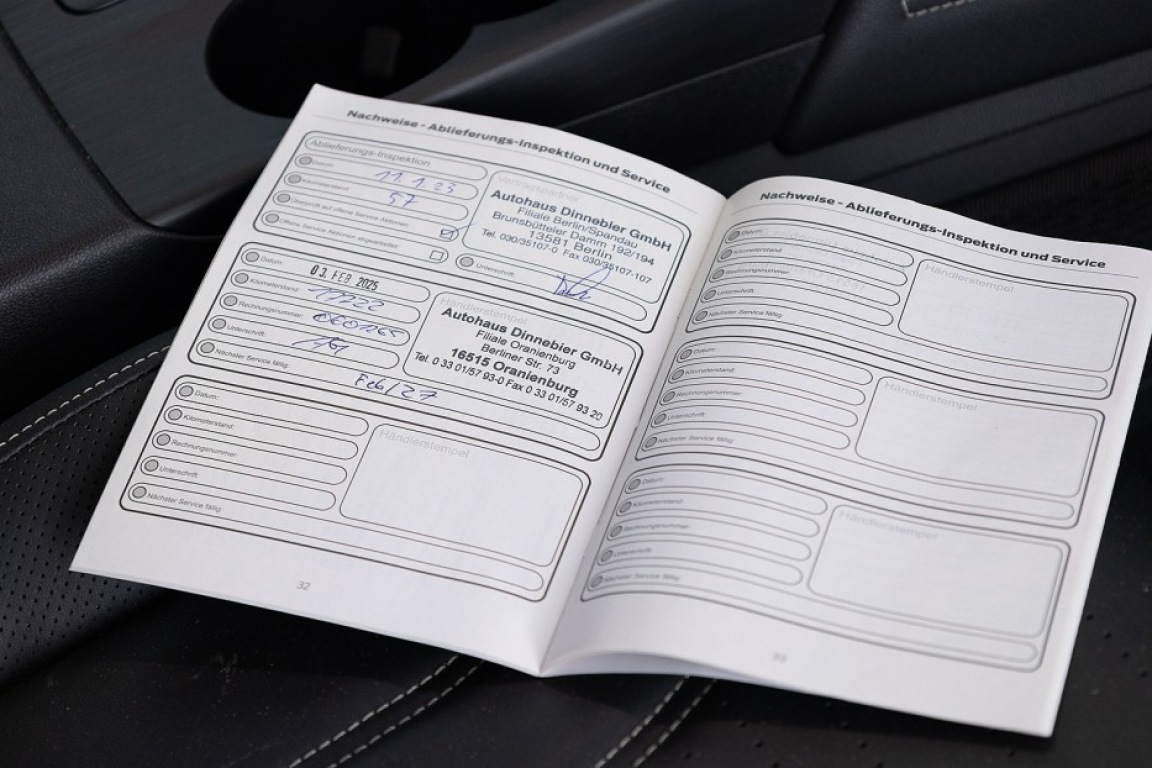 Nachweise - Ablieferungs-Inspektion und Service
Ablieferungs-Inspektion
Datum: 11.1.23
Kilometerstand: 57
Überprüft auf offene Service Aktionen:
Offene Service Aktionen abgearbeitet:
Vertragspartner
Autohaus Dinnebier GmbH
Filiale Berlin/Spandau
Brunsbütteler Damm 192/194
13581 Berlin
Tel. 030/35107-0 Fax 030/35107-107
Unterschrift:
Datum: 03. FEB 2025
Kilometerstand:
Rechnungsnummer:
Unterschrift:
Nächster Service fällig: Feb/27
Händlerstempel
Autohaus Dinnebier GmbH
Filiale Oranienburg
Berliner Str. 73
16515 Oranienburg
Tel. 0 33 01/57 93-0 Fax 0 33 01/57 93 20
Datum:
Kilometerstand:
Rechnungsnummer:
Unterschrift:
Nächster Service fällig:
Händlerstempel
32
Nachweise - Ablieferungs-Inspektion und Service
Datum:
Kilometerstand:
Rechnungsnummer:
Unterschrift:
Nächster Service fällig:
Händlerstempel
Datum:
Kilometerstand:
Rechnungsnummer:
Unterschrift:
Nächster Service fällig:
Händlerstempel
Datum:
Kilometerstand:
Rechnungsnummer:
Unterschrift:
Nächster Service fällig:
Händlerstempel
33